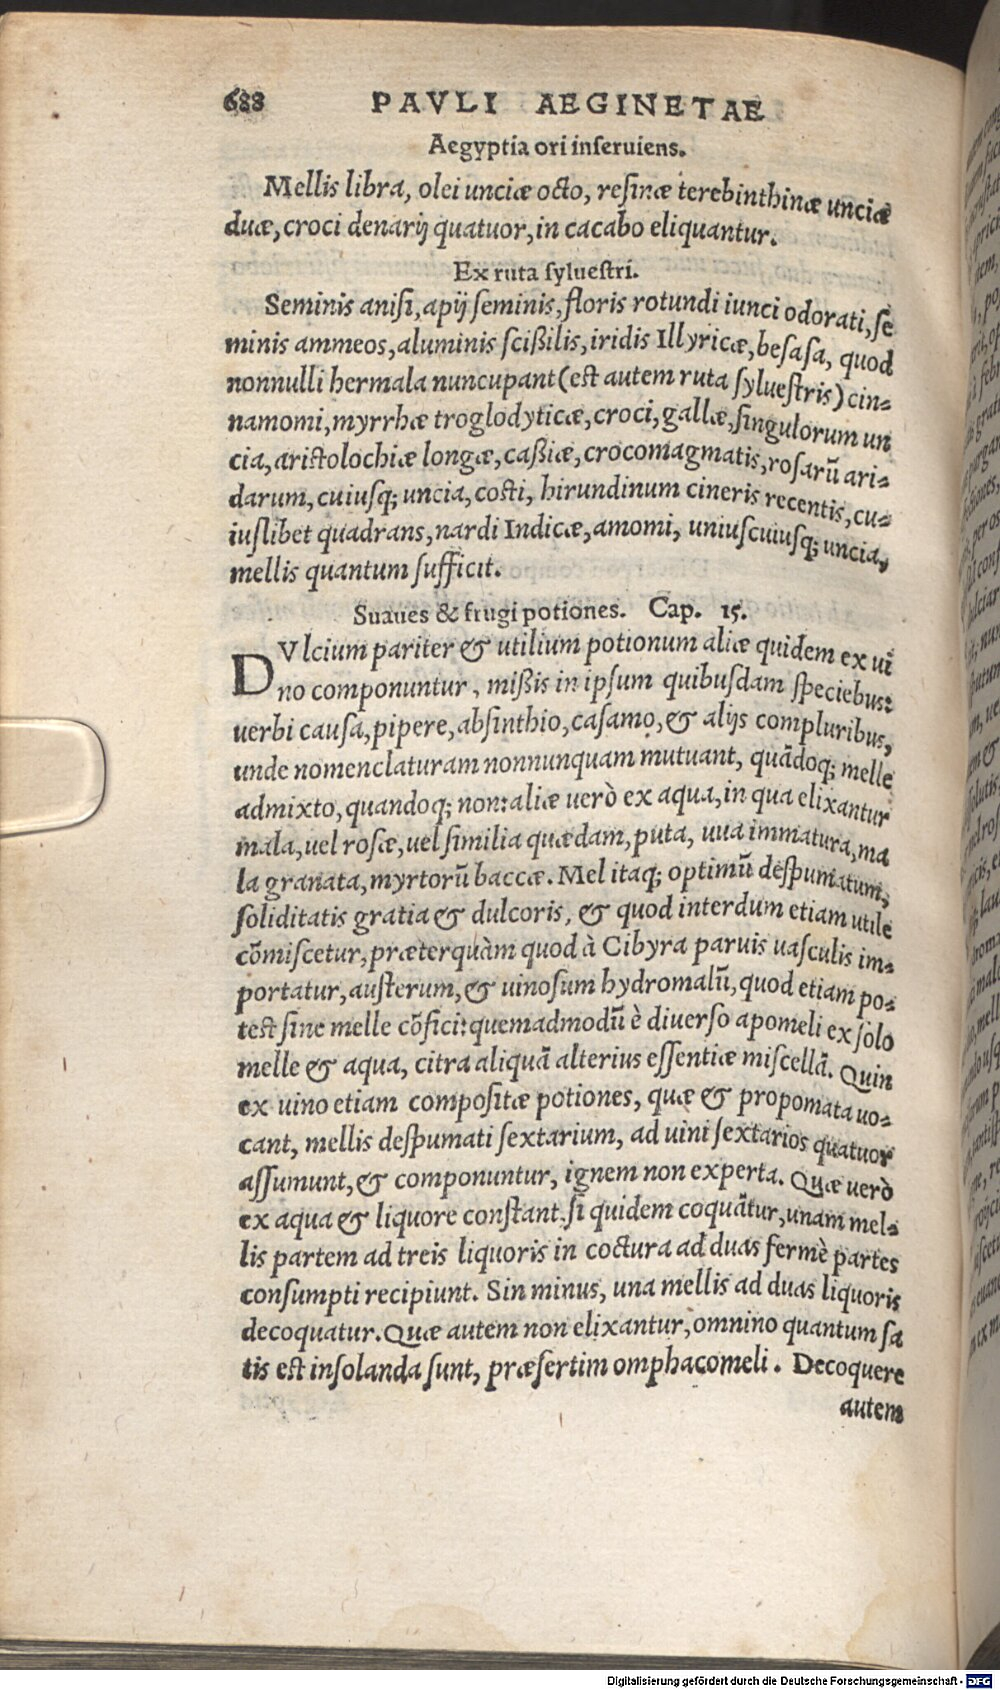 688 PAVLI AEGINETAE
Aegyptia ori inſeruiens.
Mellis libra, olei unciæ octo, reſinæ terebinthinæ unciæ
duæ, croci denarij quatuor, in cacabo eliquantur.
Ex ruta ſylueſtri.
Seminis aniſi, apij ſeminis, floris rotundi iunci odorati, ſe
minis ammeos, aluminis ſcißilis, iridis Illyricæ, beſaſa, quod
nonnulli hermala nuncupant (est autem ruta ſylueſtris) cin-
namomi, myrrhæ troglodyticæ, croci, gallæ, ſingulorum un
cia, aristolochiæ longæ, caßiæ, crocomagmatis, roſarū ari-
darum, cuiusq; uncia, costi, hirundinum cineris recentis, cu-
iuſlibet quadrans, nardi Indicæ, amomi, uniuſcuiuſq; uncia,
mellis quantum ſufficit.
Suaues & frugi potiones. Cap. 15.
DVlcium pariter & utilium potionum aliæ quidem ex ui
no componuntur, mißis in ipſum quibuſdam ſpeciebus:
uerbi cauſa, pipere, abſinthio, caſamo, & alijs compluribus,
unde nomenclaturam nonnunquam mutuant, quādoq; melle
admixto, quandoq; non: aliæ uerò ex aqua, in qua elixantur
mala, uel roſæ, uel ſimilia quædam, puta, uua immatura, ma
la granata, myrtorū baccæ. Mel itaq; optimū deſpumatum,
ſoliditatis gratia & dulcoris, & quod interdum etiam utile
cōmiſcetur, præterquàm quod à Cibyra paruis uaſculis im-
portatur, auſterum, & uinoſum hydromalū, quod etiam po-
test ſine melle cōfici: quemadmodū è diuerſo apomeli ex ſolo
melle & aqua, citra aliquā alterius eſſentiæ miſcellā. Quin
ex uino etiam compoſitæ potiones, quæ & propomata uo-
cant, mellis deſpumati ſextarium, ad uini ſextarios quatuor
aſſumunt, & componuntur, ignem non experta. Quæ uerò
ex aqua & liquore conſtant: ſi quidem coquātur, unam mel-
lis partem ad treis liquoris in coctura ad duas fermè partes
conſumpti recipiunt. Sin minus, una mellis ad duas liquoris
decoquatur. Quæ autem non elixantur, omnino quantum ſa
tis est inſolanda ſunt, præſertim omphacomeli. Decoquere
autem
Digitalisierung gefördert durch die Deutsche Forschungsgemeinschaft - DFG